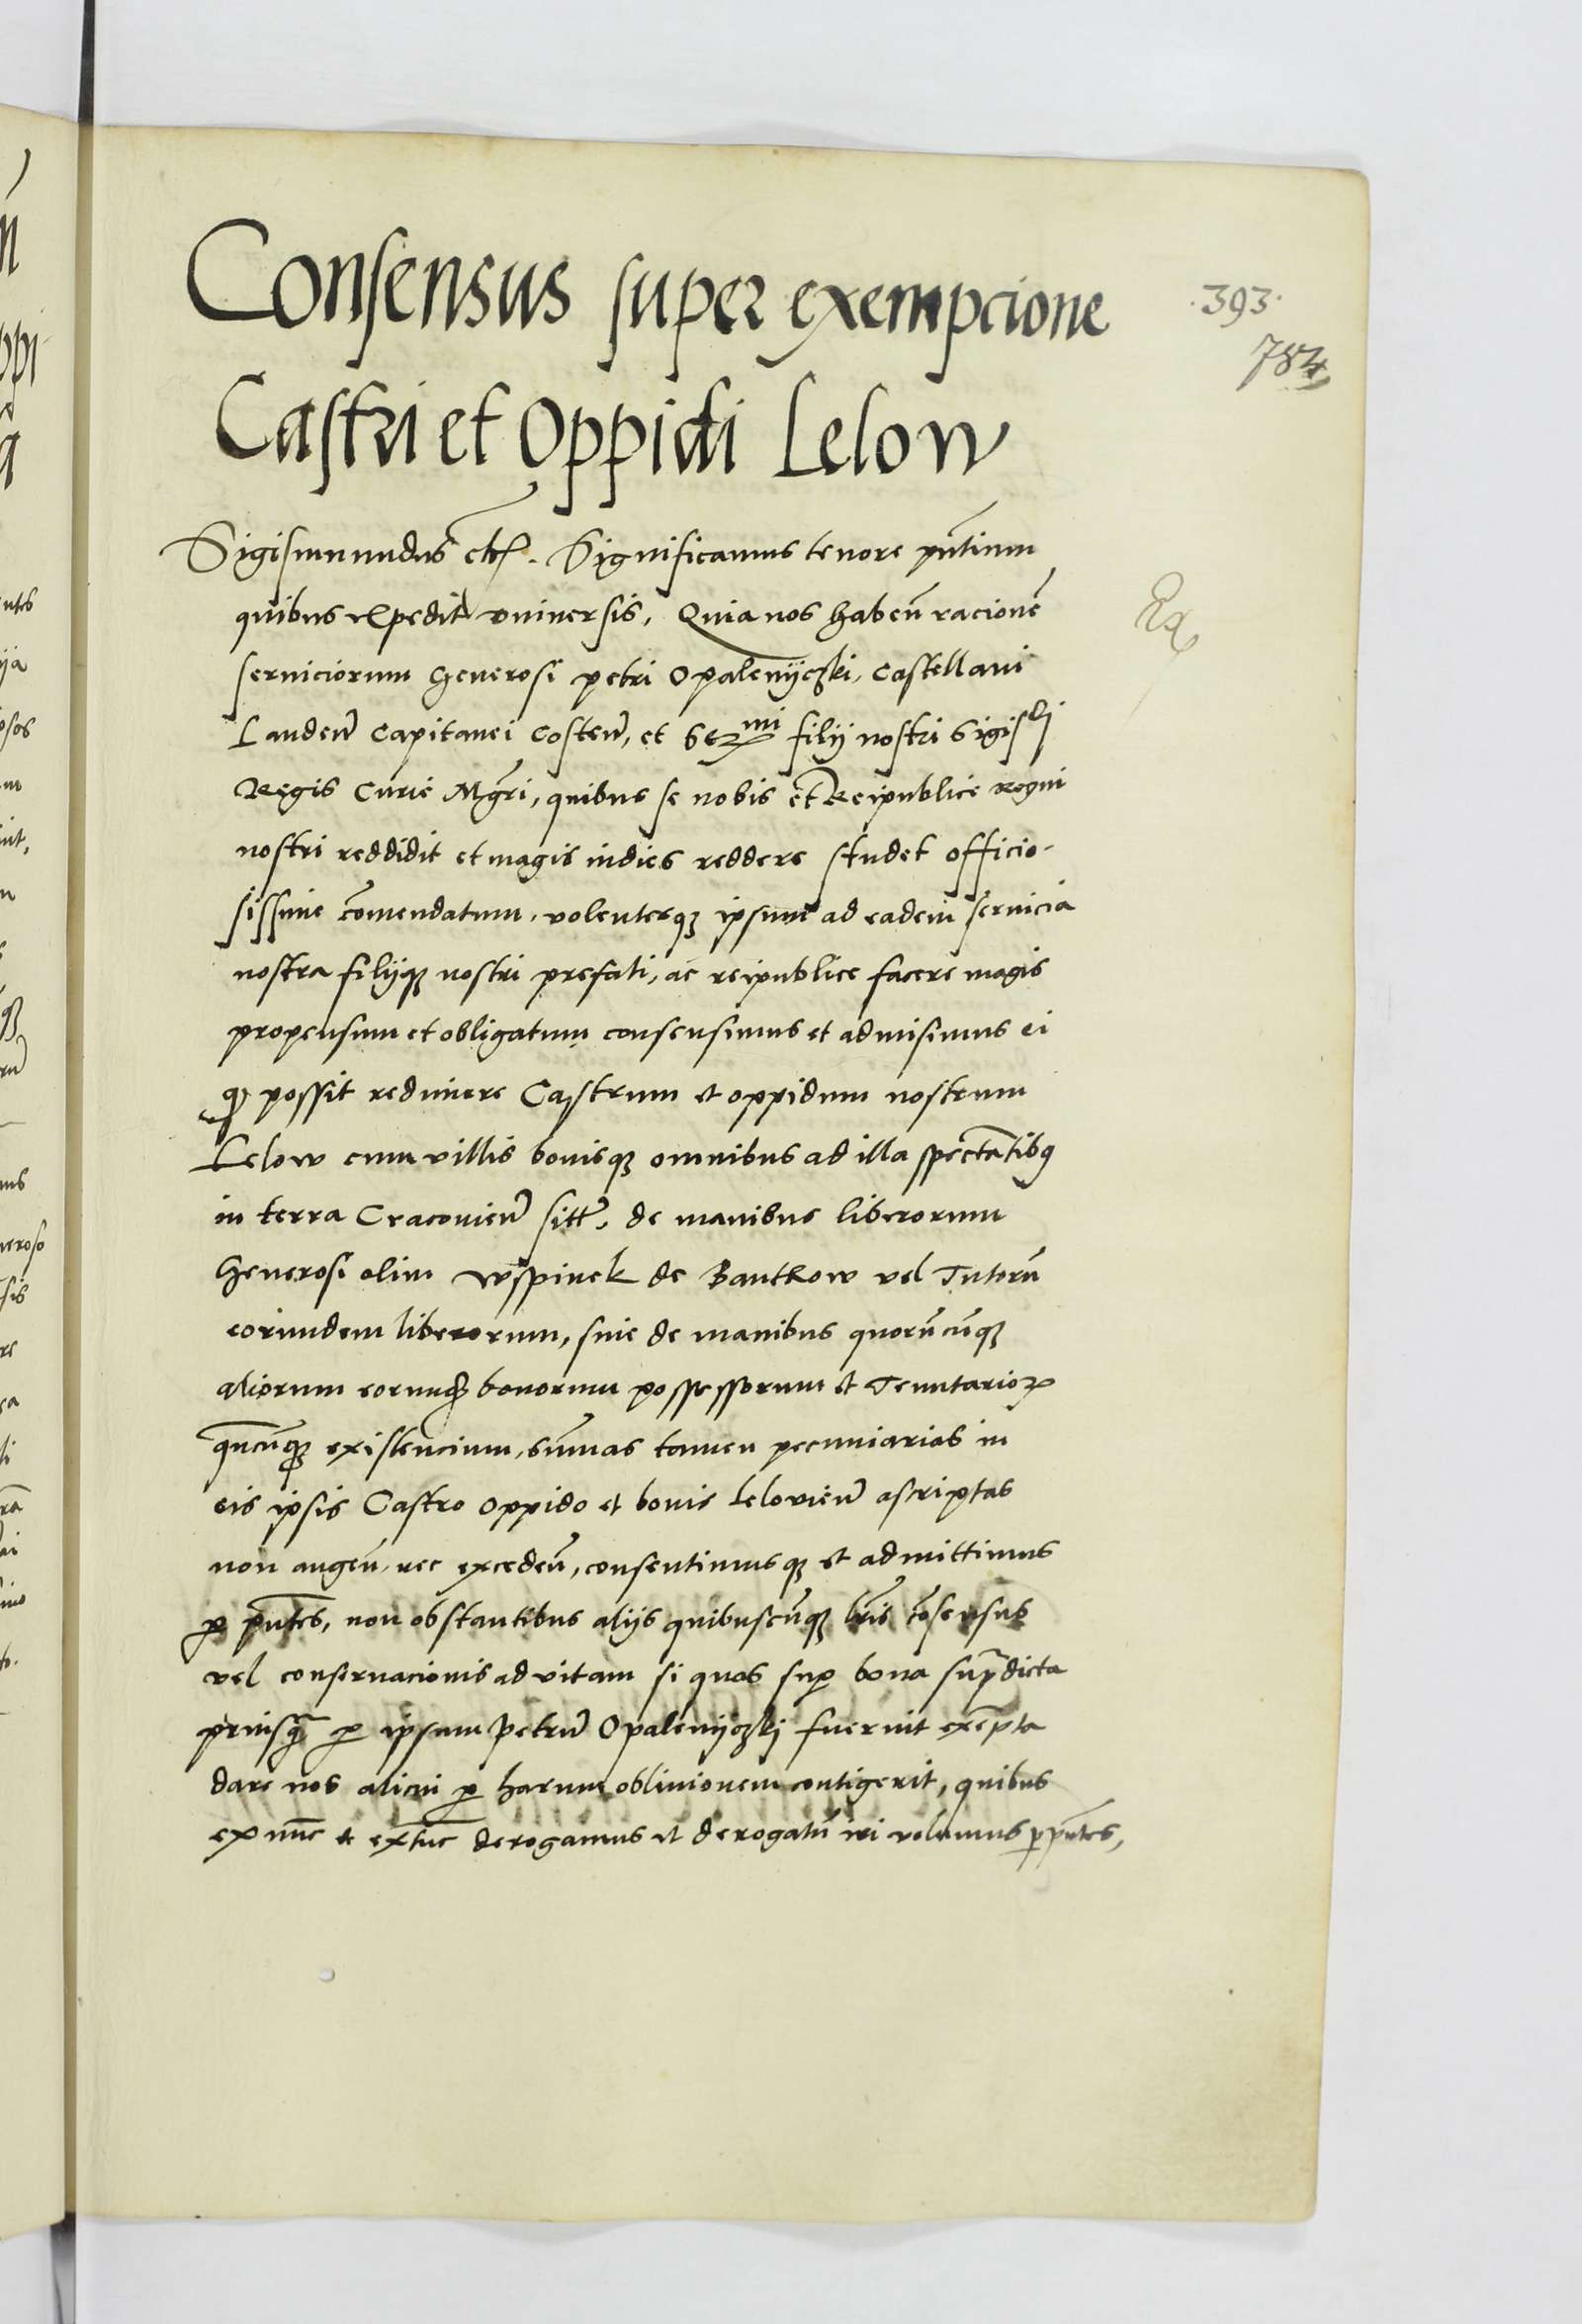 Consensus super exempcione
.393.
784
Castri et Oppidi Lelow
Sigismundus etc. Significamus tenore pñtium
quibus expedit vniuersis, Quia nos habeñ racionẽ
seruiciorum Generosi petri Opalenijczki, Castellani
Landeñ Capitanei Costeñ, et Serᵐⁱ filij nostri Sigisᵈⁱ
Ex
Regis Curie Mgr̃i, quibus se nobis et Reipublice Regni
nostri reddidit et magis indies reddere studet officio-
sissime cõmendatum, volentesqȝ ipsum ad eadem seruicia
nostra filijqȝ nostri prefati, ac reipublice facere magis
propensum et obligatum consensimus et admisimus ei
qͦ possit redimere Castrum et oppidum nostrum
Lelow cum villis bonisqȝ omnibus ad illa spectãtibꝰ
in terra Cracovieñ sitt̃, de manibus liberorum
Generosi olim Wspinek de Bantkow vel Tutorũ
eorundem liberorum, siue de manibus quorũcũqȝ
aliorum eorundẽ bonorum possessorum et Tenutarioꝝ
qñcũqȝ existencium, sũmas tamen pecuniarias in
eis ipsis Castro oppido et bonis Lelovieñ ascriptas
non augeñ, nec excedeñ, consentimusqȝ et admittimus
ꝑ pñtes, non obstantibus alijs quibuscũqȝ lr̃is cõsensus
vel conseruacionis ad vitam si quas suꝑ bona supͣdicta
priusqͣ̃ ꝑ ipsum petrũ Opalenijczkj fuerint exẽpta
dare nos alicui ꝑ harum obliuionem contigerit, quibus
ex nũc et extũc derogamus et derogatũ iri volumus ꝑ pñtes,